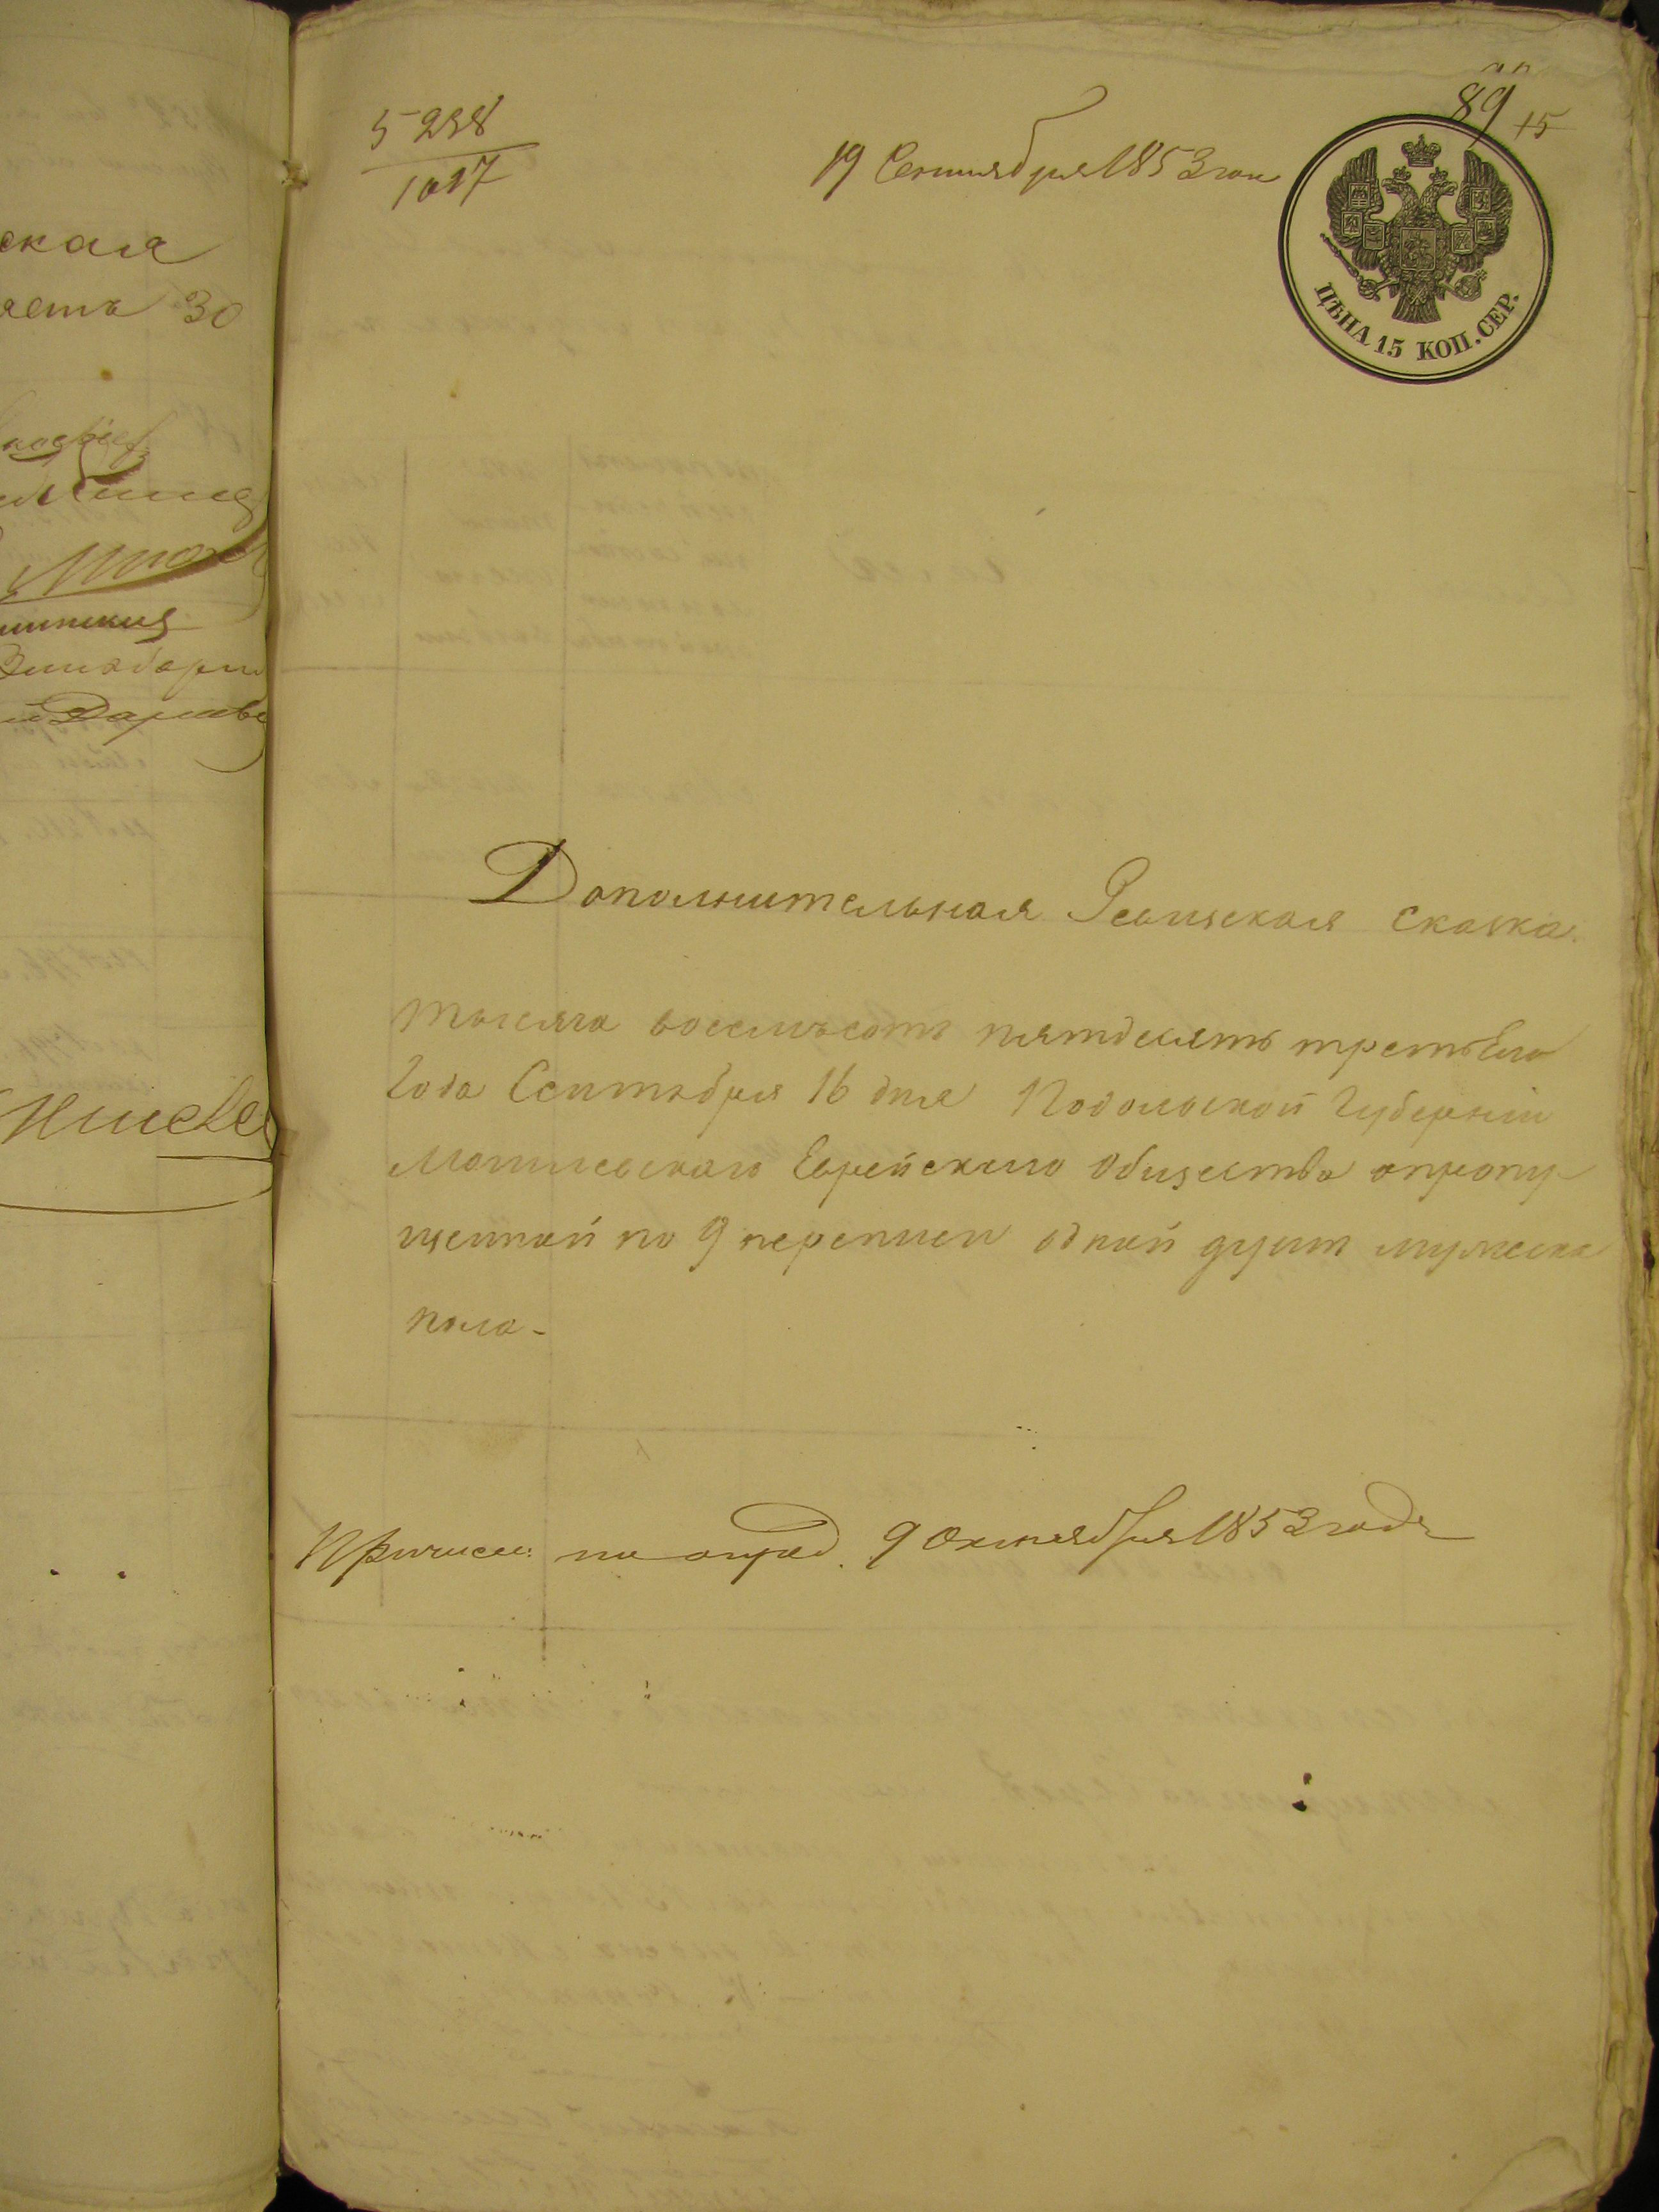 5238
1017
19 Сентября 1853 года
89
15
ЦѢНА 15 КОП. СЕР.
Дополнительная Ревизская сказка.
тысяча восемьсотъ пятдесятъ третьего
Года Сентября 16 дня Подольской Губерніи
Могилевскаго Еврейского Общества опропу-
щенной по 9 переписи одной души мужеска
пола-
Причисл: по опред. 9 Октября 1853 года
ская
30